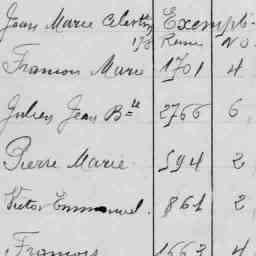 Jean Marie Celestin Exempt.
Rennes No
François Marie 1701 4
Julien Jean Bte 2766 6
Pierre Marie 594 2
Victor Emmanuel. 861 2
François 1663 4